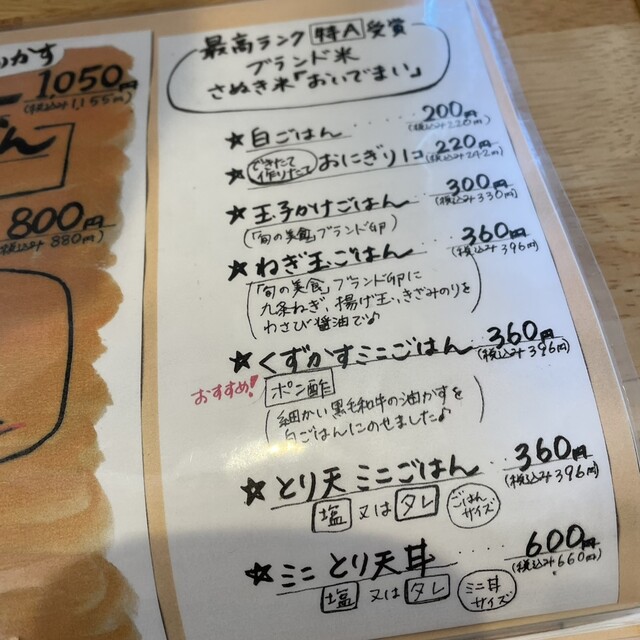 かす
1,050円
(税込み1,155円)
800円
(税込み880円)
最高ランク 特A 受賞
ブランド米
さぬき米「おいでまい」
★白ごはん 200円
(税込み220円)
★できたて 作りたて おにぎり1コ 220円
(税込み242円)
★玉子かけごはん 300円
(税込み330円)
(「旬の美食」ブランド卵)
★ねぎ玉ごはん 360円
(税込み396円)
「旬の美食」ブランド卵に
九条ねぎ、揚げ玉、きざみのりを
わさび醤油で♪
★くずかすミニごはん 360円
(税込み396円)
おすすめ! ポン酢
細かい黒毛和牛の油かすを
白ごはんにのせました♪
★とり天ミニごはん 360円
(税込み396円)
塩 又は タレ ごはんサイズ
★ミニとり天丼 600円
(税込み660円)
塩 又は タレ ミニ丼サイズ